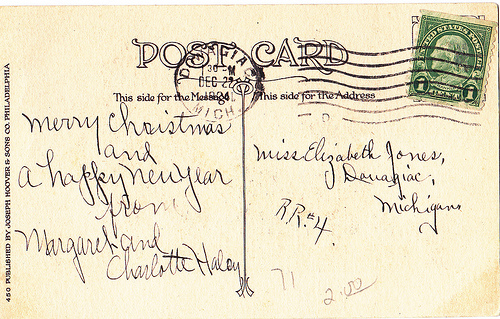 POST CARD
DOWAGIAC
30 - M
DEC 22
MICH.
UNITED STATES POSTAGE
1 1
This side for the Message
This side for the Address
Merry Christmas
and
a happy New Year
from
Margaret and
Charlotte Haley
Miss Elizabeth Jones,
Douagiac,
Michigan
R.R.#4.
71
2.00
450 PUBLISHED BY JOSEPH HOOVER & SONS CO. PHILADELPHIA